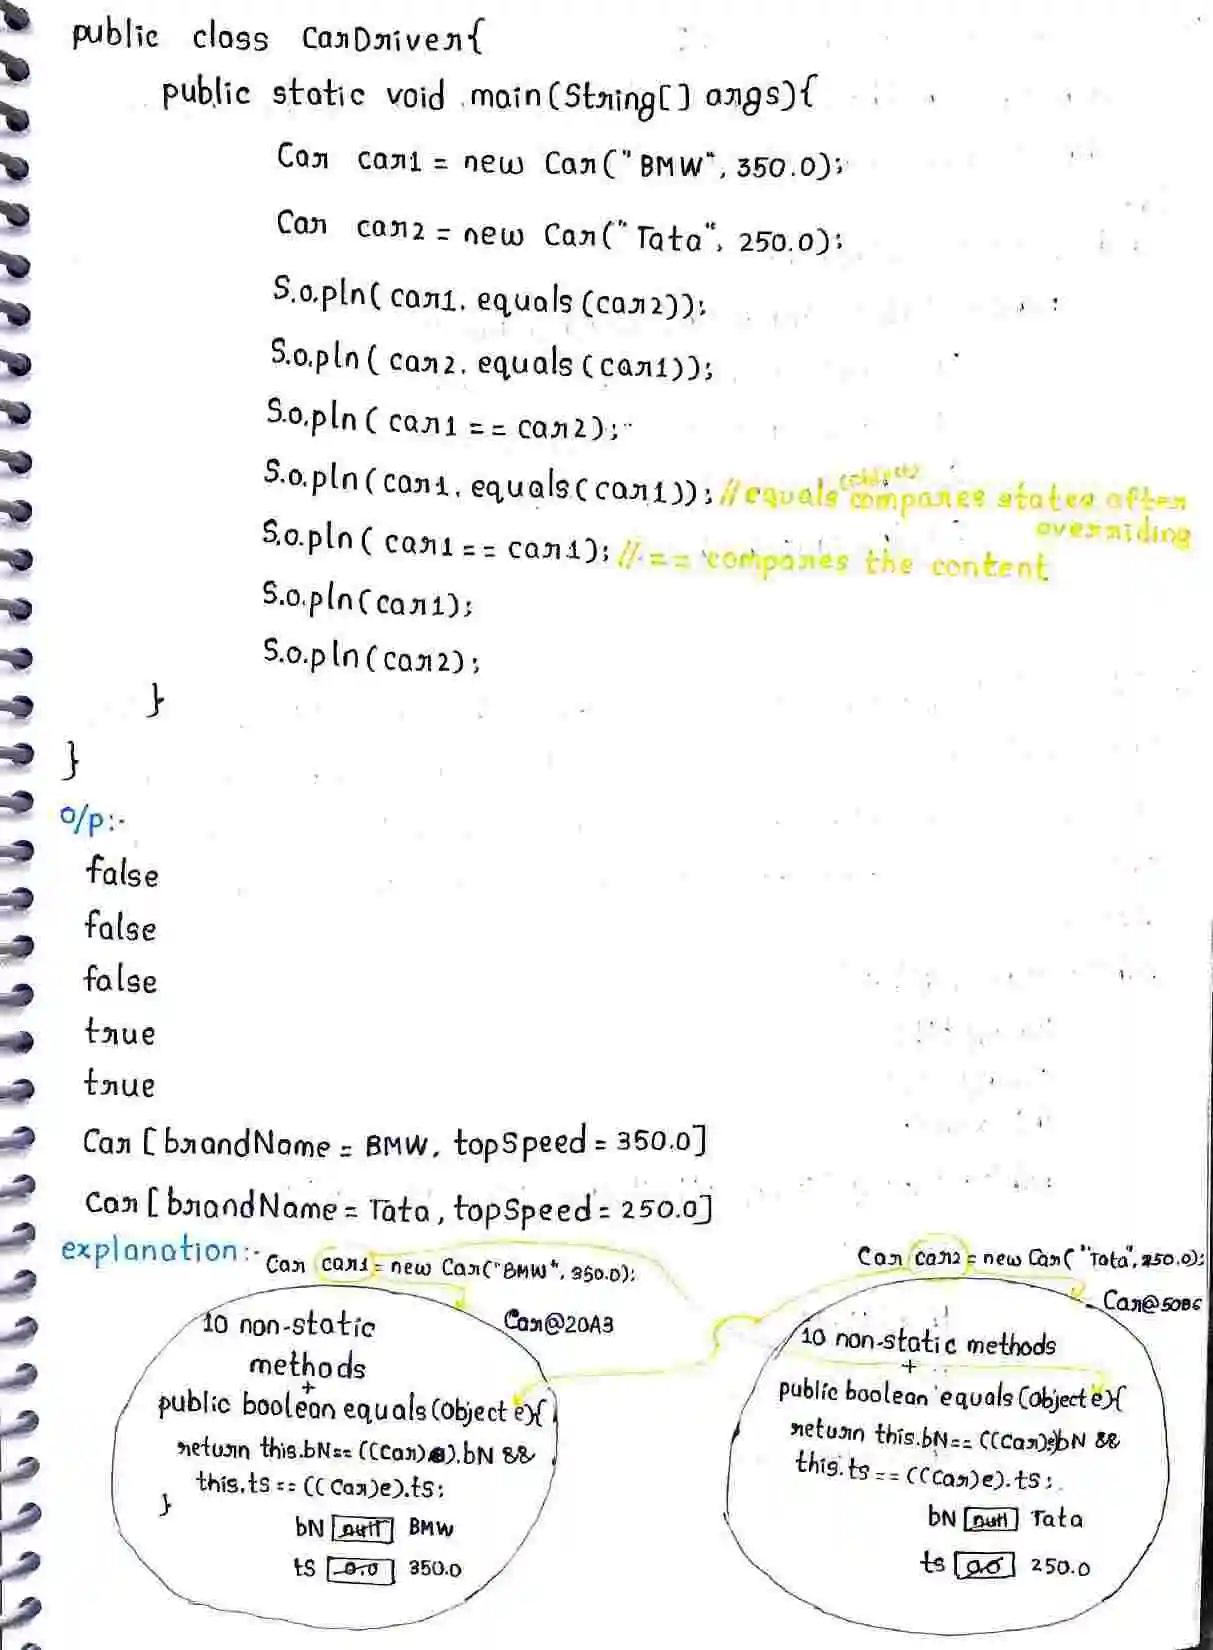 public class CarDriver{
public static void main(String[] args){
Car car1 = new Car("BMW", 350.0);
Car car2 = new Car("Tata", 250.0);
S.o.pln(car1.equals(car2));
S.o.pln(car2.equals(car1));
S.o.pln(car1 == car2);
S.o.pln(car1.equals(car1)); //equals (object) compares states after overriding
S.o.pln(car1 == car1); // == compares the content
S.o.pln(car1);
S.o.pln(car2);
}
}
o/p:-
false
false
false
true
true
Car [brandName = BMW, topSpeed = 350.0]
Car [brandName = Tata, topSpeed = 250.0]
explanation:-
Car car1 = new Car("BMW", 350.0);
Car@20A3
10 non-static
methods
+
public boolean equals(Object e){
return this.bN == ((Car)e).bN &&
this.ts == ((Car)e).ts;
}
bN null BMW
ts 0.0 350.0
Car car2 = new Car("Tata", 250.0);
Car@50B6
10 non-static methods
+
public boolean equals(Object e){
return this.bN == ((Car)e)bN &&
this.ts == ((Car)e).ts;
bN null Tata
ts 0.0 250.0